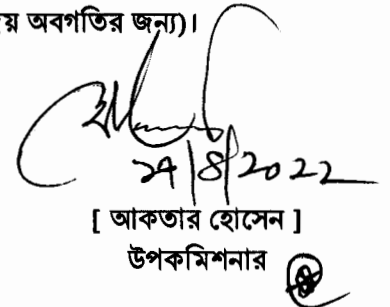 য় অবগতির জন্য)।
২৪/৪/2022
[ আকতার হোসেন ]
উপকমিশনার